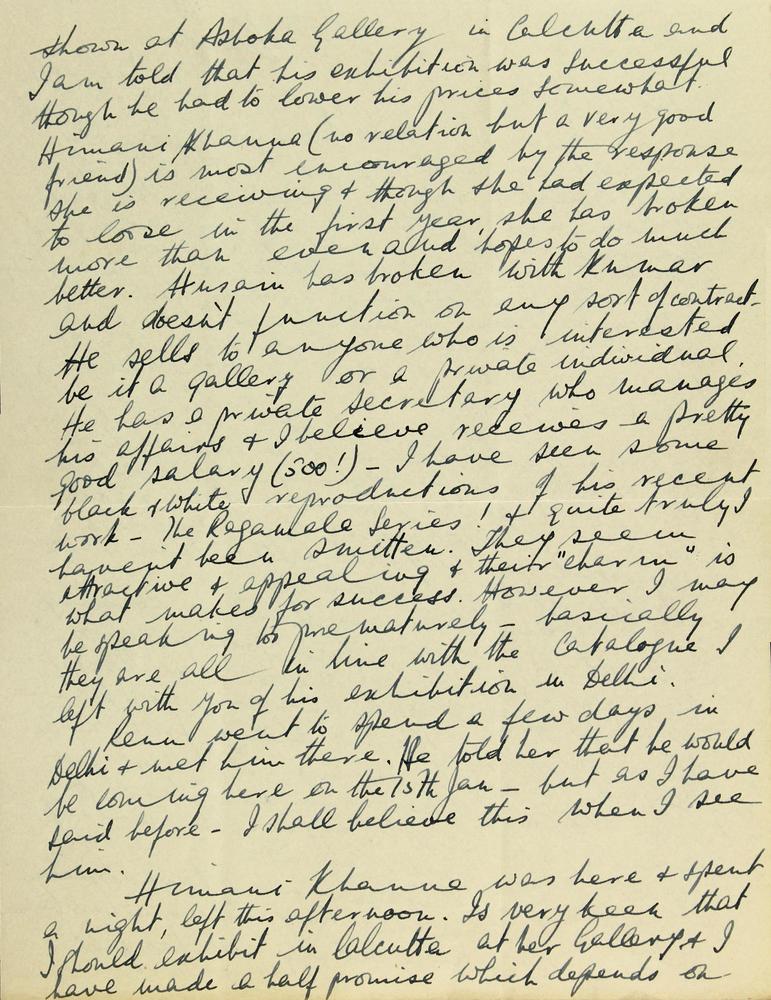 shown at Ashoka Gallery in Calcutta and
I am told that his exhibition was successful
though he had to lower his prices somewhat.
Himani Khanna (no relation but a very good
friend) is most encouraged by the response
she is receiving & though she had expected
to loose in the first year, she has broken
more than even and hopes to do much
better. Husain has broken with Kumar
and doesn't function on any sort of contract.
He sells to anyone who is interested
be it a gallery or a private individual.
He has a private secretary who manages
his affairs & I believe receives a pretty
good salary (500!) - I have seen some
black & white reproductions of his recent
work - The Ragamala Series! & quite truly I
haven't been smitten. They seem
attractive & appealing & their "charm" is
what makes for success. However I may
be speaking too prematurely - basically
they are all in line with the Catalogue I
left with you of his exhibition in Delhi.
Renu went to spend a few days in
Delhi & met him there. He told her that he would
be coming here on the 15th Jan - but as I have
said before - I shall believe this when I see
him.
Himani Khanna was here & spent
a night, left this afternoon. Is very keen that
I should exhibit in Calcutta at her Gallery & I
have made a half promise which depends on